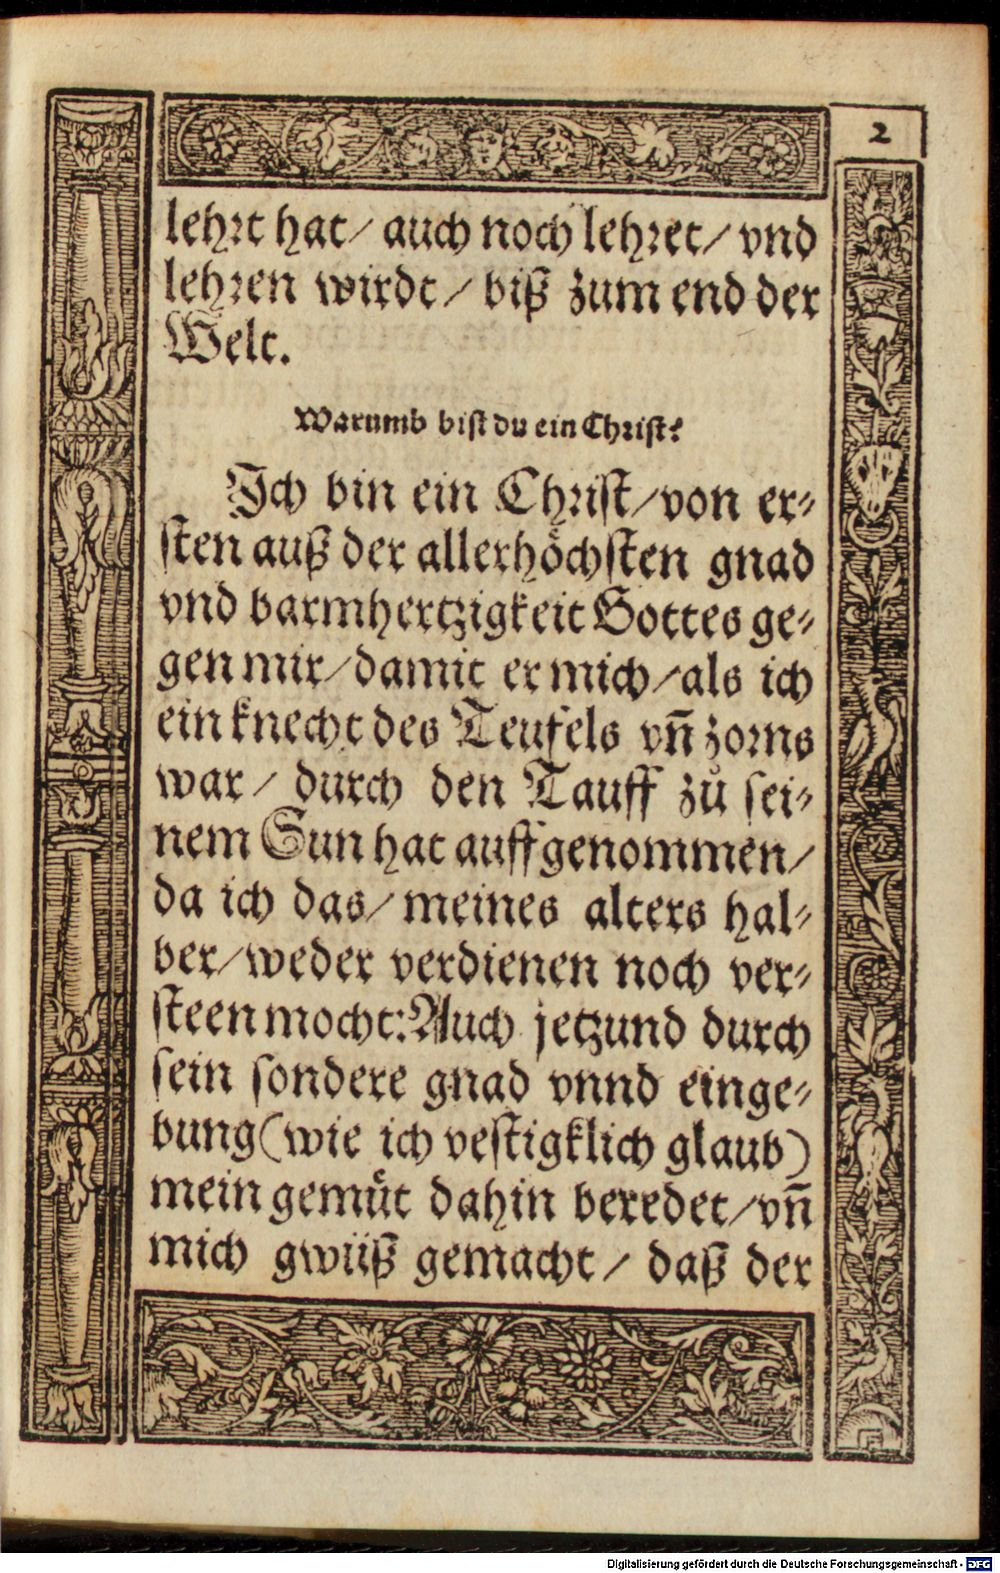 2
lehrt hat/ auch noch lehret/ vnd
lehren wirdt/ biß zum end der
Welt.
Warumb bist du ein Christ?
Ich bin ein Christ/ von er-
sten auß der allerhöchsten gnad
vnd barmhertzigkeit Gottes ge-
gen mir/ damit er mich/ als ich
ein knecht des Teufels vñ zorns
war/ durch den Tauff zů sei-
nem Sun hat auffgenommen/
da ich das/ meines alters hal-
ber/ weder verdienen noch ver-
steen mocht: Auch jetzund durch
sein sondere gnad vnnd einge-
bung (wie ich vestigklich glaub)
mein gemüt dahin beredet/ vñ
mich gwüß gemacht/ daß der
Digitalisierung gefördert durch die Deutsche Forschungsgemeinschaft - DFG